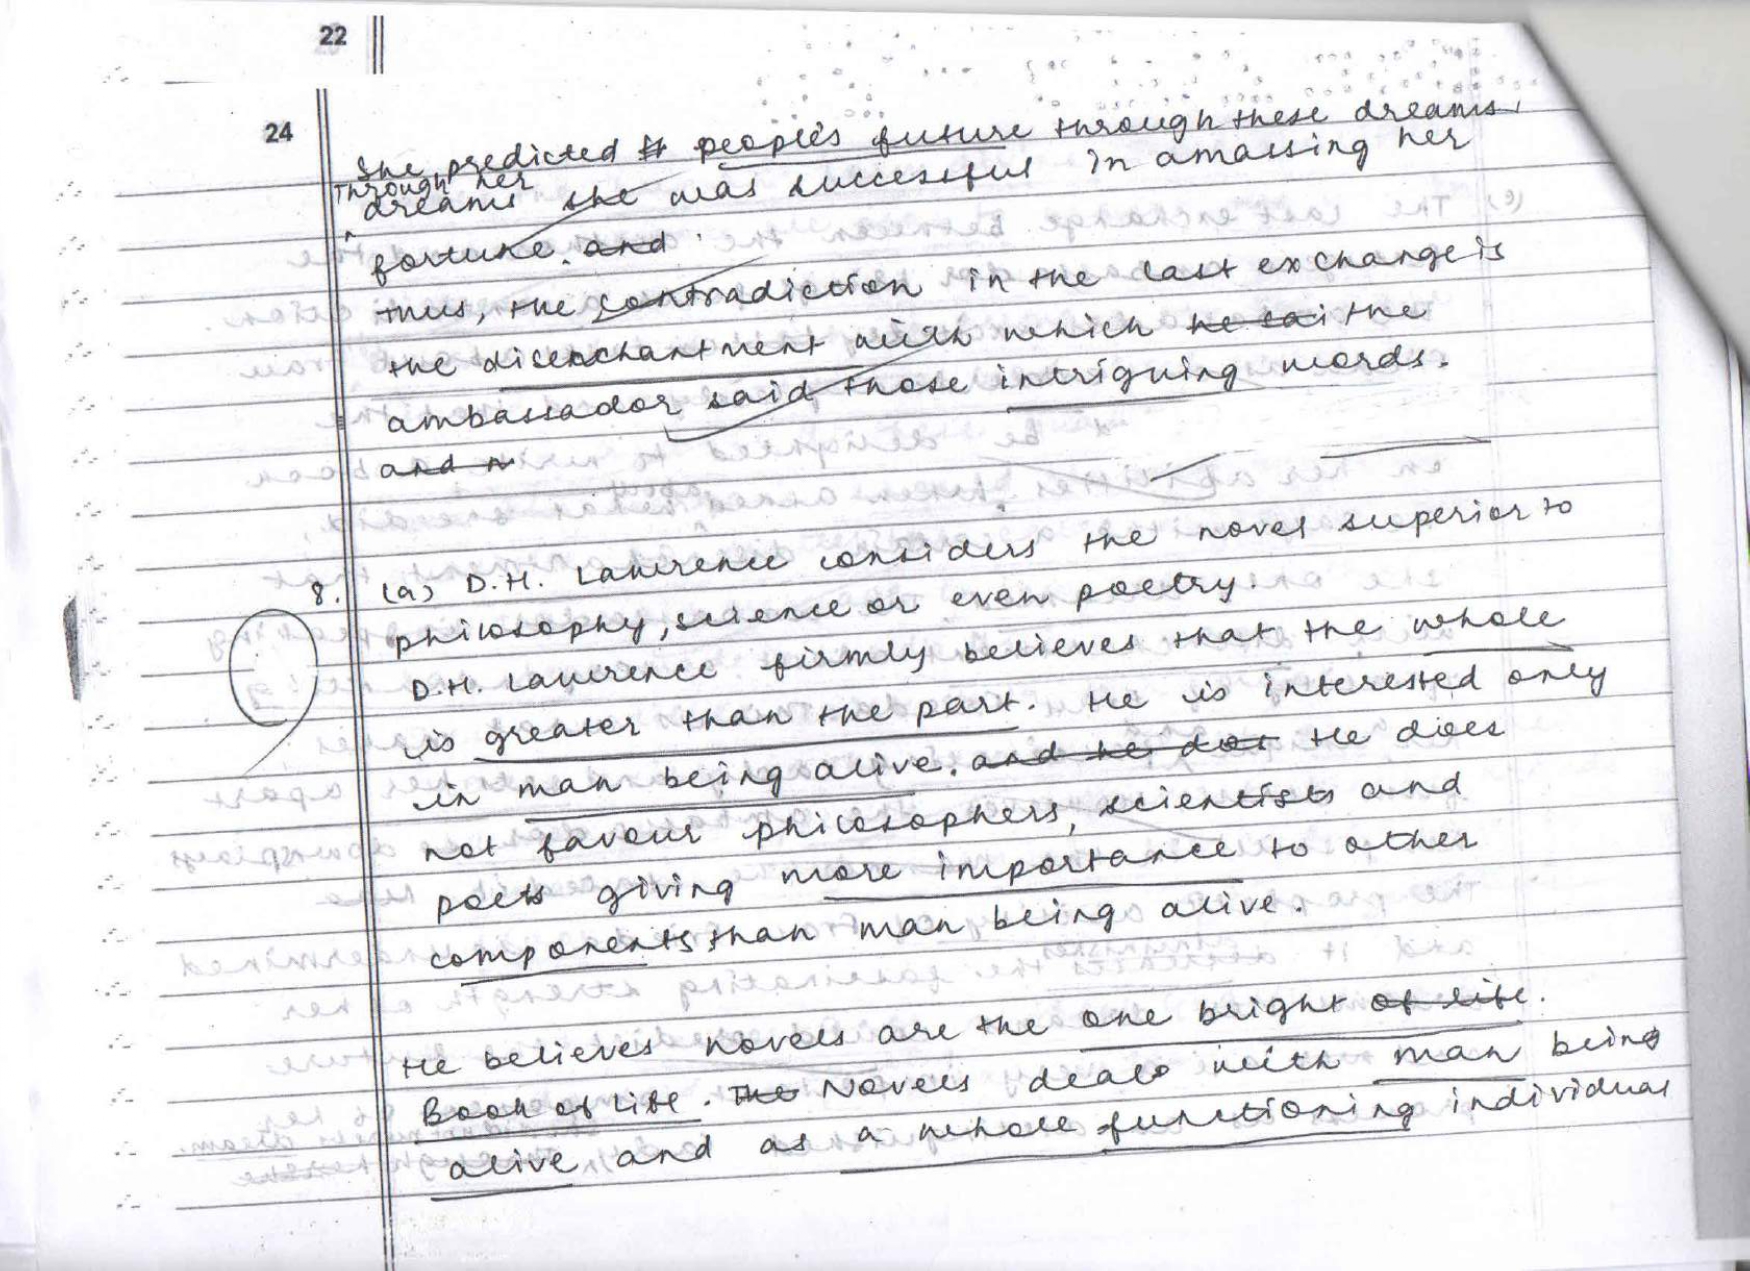 22
24
She predicted people's future through these dreams.
Through her
dreams she was successful in amassing her
fortune. and
thus, the contradiction in the last exchange is
the disenchantment with which he sai the
ambassador said those intriguing words.
and
8. (a) D.H. Lawrence considers the novel superior to
philosophy, science or even poetry.
D.H. Lawrence firmly believes that the whole
is greater than the part. He is interested only
in man being alive. and he dos He does
not favour philosophers, scientists and
poets giving more importance to other
components than man being alive.
He believes novels are the one bright of life.
Book of Life. The Novels deals with man being
alive and as a whole functioning individual